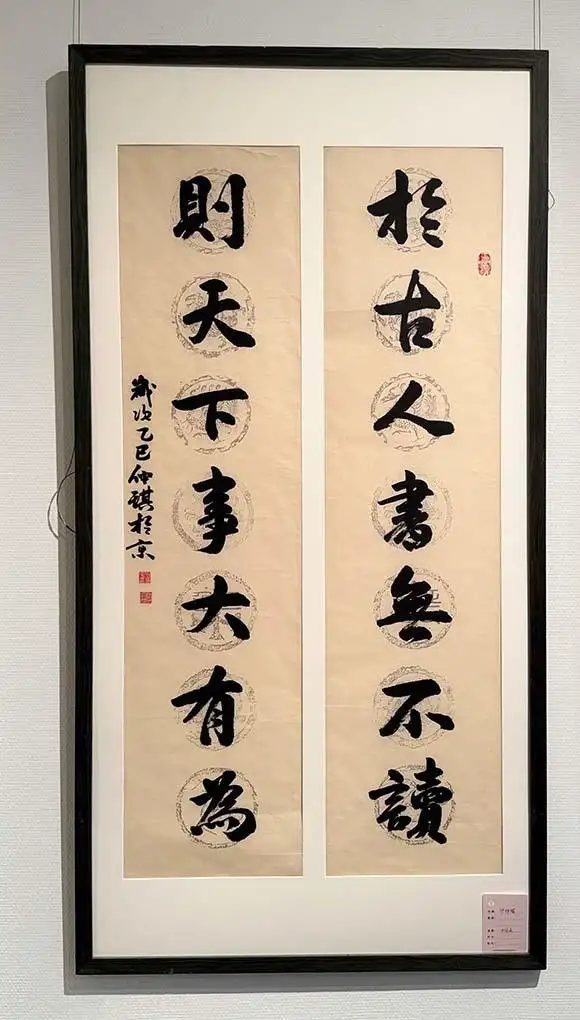 於古人書無不讀
則天下事大有為
歲次乙巳仲琪於京